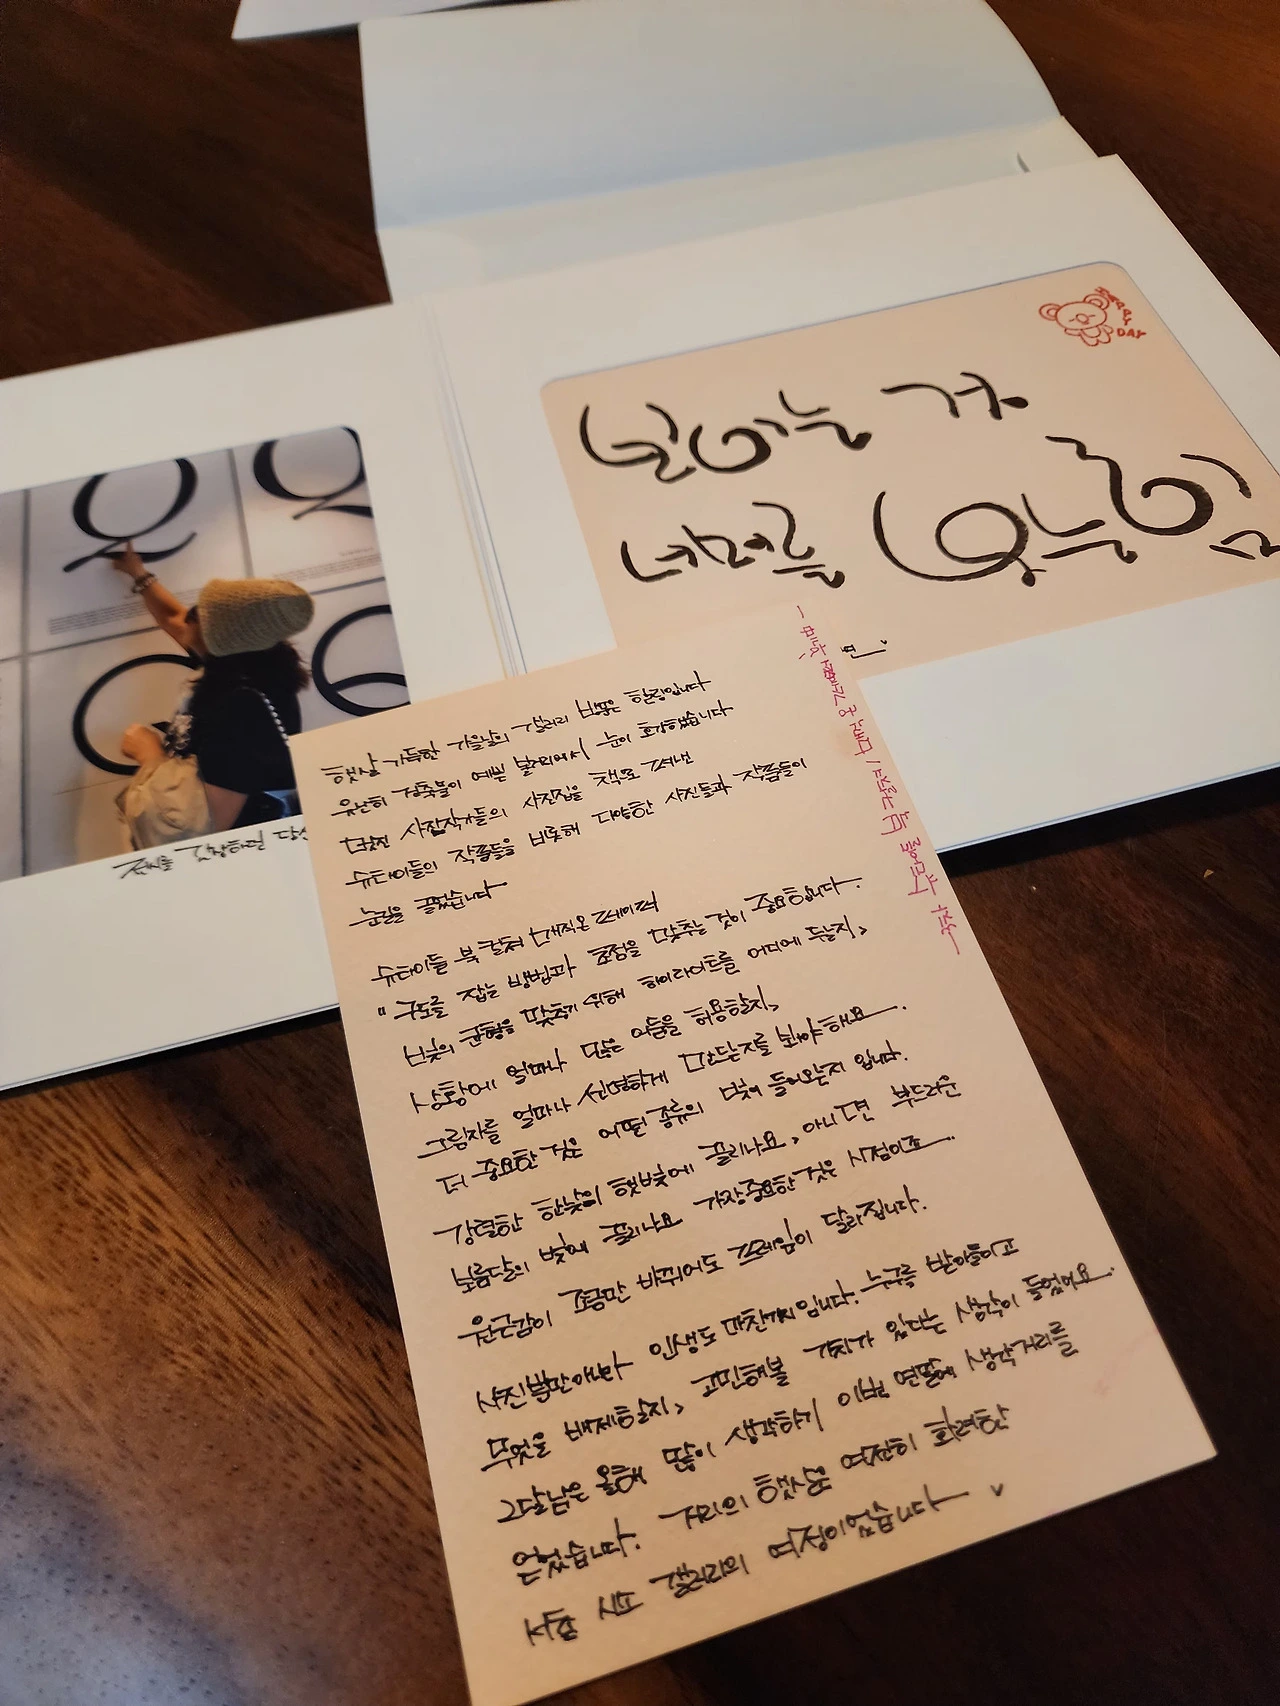 HAPPY
DAY
보이는 것
너머를
Q
글씨를 감상하던
햇살 가득한 가을날의 갤러리 방문은 힐링입니다
유난히 건축물이 예쁜 눈이 호강했습니다
멋진 사진작가들의 사진집을 책으로 펴낸
슈타이들의 작품들을 비롯해 다양한 사진들과 작품들이
눈길을 끌었습니다
슈타이들 북 컬쳐 매직온 페이퍼
"구도를 잡는 방법과 초점을 맞추는 것이 중요합니다.
빛의 균형을 맞추기 위해 하이라이트를 어디에 두는지,
상황에 얼마나 많은 어둠을 허용할지,
그림자를 얼마나 선명하게 만드는지를 봐야해요
더 중요한 것은 어떤 종류의 빛이 들어오는지 입니다.
강렬한 한낮의 햇빛에 끌리나요, 아니면 부드러운
보름달의 빛에 끌리나요 가장중요한 것은 시점이죠
원근감이 조금만 바뀌어도 프레임이 달라집니다.
사진뿐만아니라 인생도 마찬가지입니다. 누구를 받아들이고
무엇을 배제할지, 고민해볼 가치가 있다는 생각이 들었어요.
그달님은 올해 많이 생각하기 이번 연말에 생각거리를
얻었습니다. 거리의 햇살은 여전히 화려한
서촌 시프 갤러리의 여정이었습니다